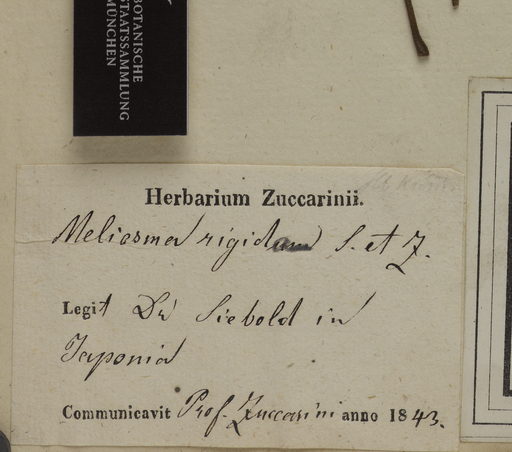 BOTANISCHE
STAATSSAMMLUNG
MÜNCHEN
Herbarium Zuccarinii.
Meliosma rigida S. et Z.
Legit Dr Siebold in
Japonia
Communicavit Prof. Zuccarini anno 1843.